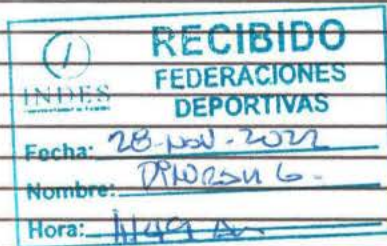 RECIBIDO
FEDERACIONES
INDES
DEPORTIVAS
Fecha: 28-NOV-2022
Nombre:
Hora: